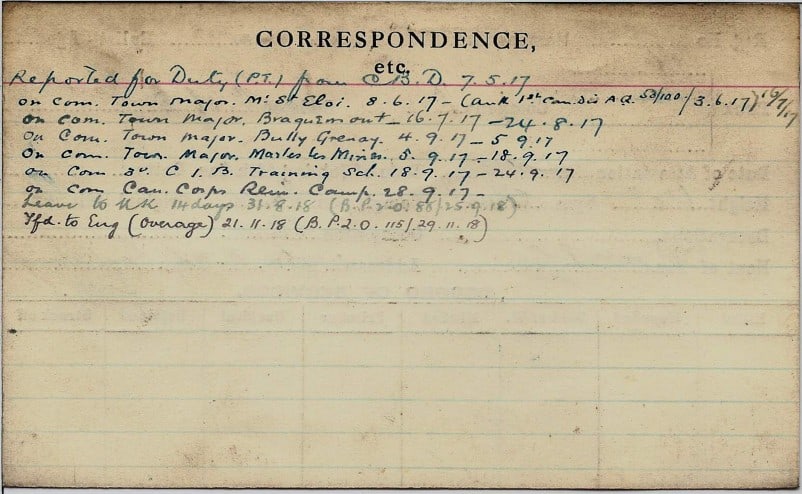 CORRESPONDENCE,
etc.
Reported for Duty (P.T.) from C B. D. 7.5.17
on com. Town Major. Mt St Eloi. 8.6.17 - (Auth 1st Can. Div A.Q. 53/100 / 3.6.17) 16/7/17
on com. Town Major. Braquemont - 16.7.17 - 24.8.17
On Com. Town Major. Bully Grenay. 4.9.17 - 5.9.17
On Com. Town. Major. Marles les Mines. 5.9.17 - 18.9.17
on Com 3r. C I. B. Training Sch. 18.9.17 - 24.9.17
on com Can. Corps Rein. Camp. 28.9.17 -
Leave to UK 14 days 31.8.18 (B.P.2.0.88/25.9.18)
Tfd. to Eng (Overage) 21.11.18 (B.P.2.0. 115/29.11.18)